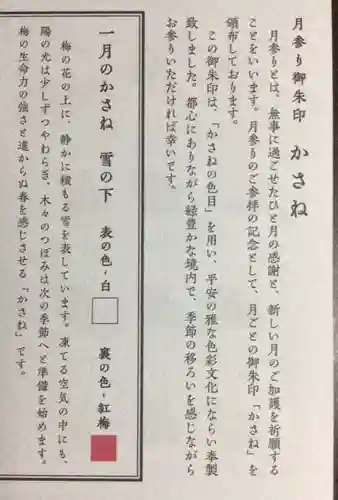 月参り御朱印 かさね
月参りとは、無事に過ごせたひと月の感謝と、新しい月のご加護を祈願する
ことをいいます。月参りのご参拝の記念として、月ごとの御朱印「かさね」を
頒布しております。
この御朱印は、「かさねの色目」を用い、平安の雅な色彩文化にならい奉製
致しました。都心にありながら緑豊かな境内で、季節の移ろいを感じながら
お参りいただければ幸いです。
一月のかさね 雪の下 表の色-白 裏の色-紅梅
梅の花の上に、静かに積もる雪を表しています。凍てる空気の中にも、
陽の光は少しずつやわらぎ、木々のつぼみは次の季節へと準備を始めます。
梅の生命力の強さと遠からぬ春を感じさせる「かさね」です。